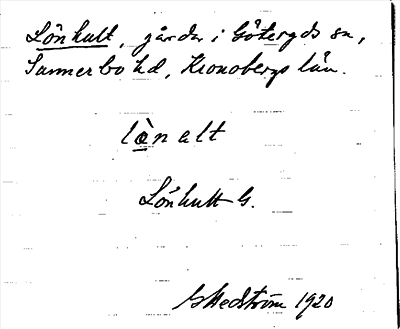 Lönhult, gårdar i Göteryds sn,
Sunnerbo hd, Kronobergs län.
lònalt
Lönhult G.
G Hedström 1920